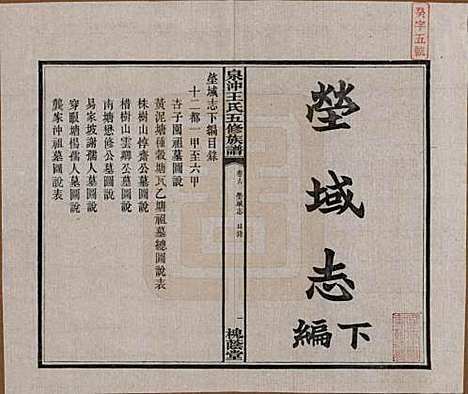 癸字五號
塋域志
下編
泉沖王氏五修族譜
塋域志 目錄
一
槐蔭堂
塋域志下編目錄
十二都一甲至六甲
杏子園祖墓圖說
黃泥塘種穀塘瓦乙塘祖墓總圖說表
株樹山惇齋公墓圖說
樹山雲卿公墓圖說表
南塘懋修公墓圖說
易家坡謝孺人墓圖說
穿眼塘楊孺人墓圖說
龔家沖祖墓圖說表